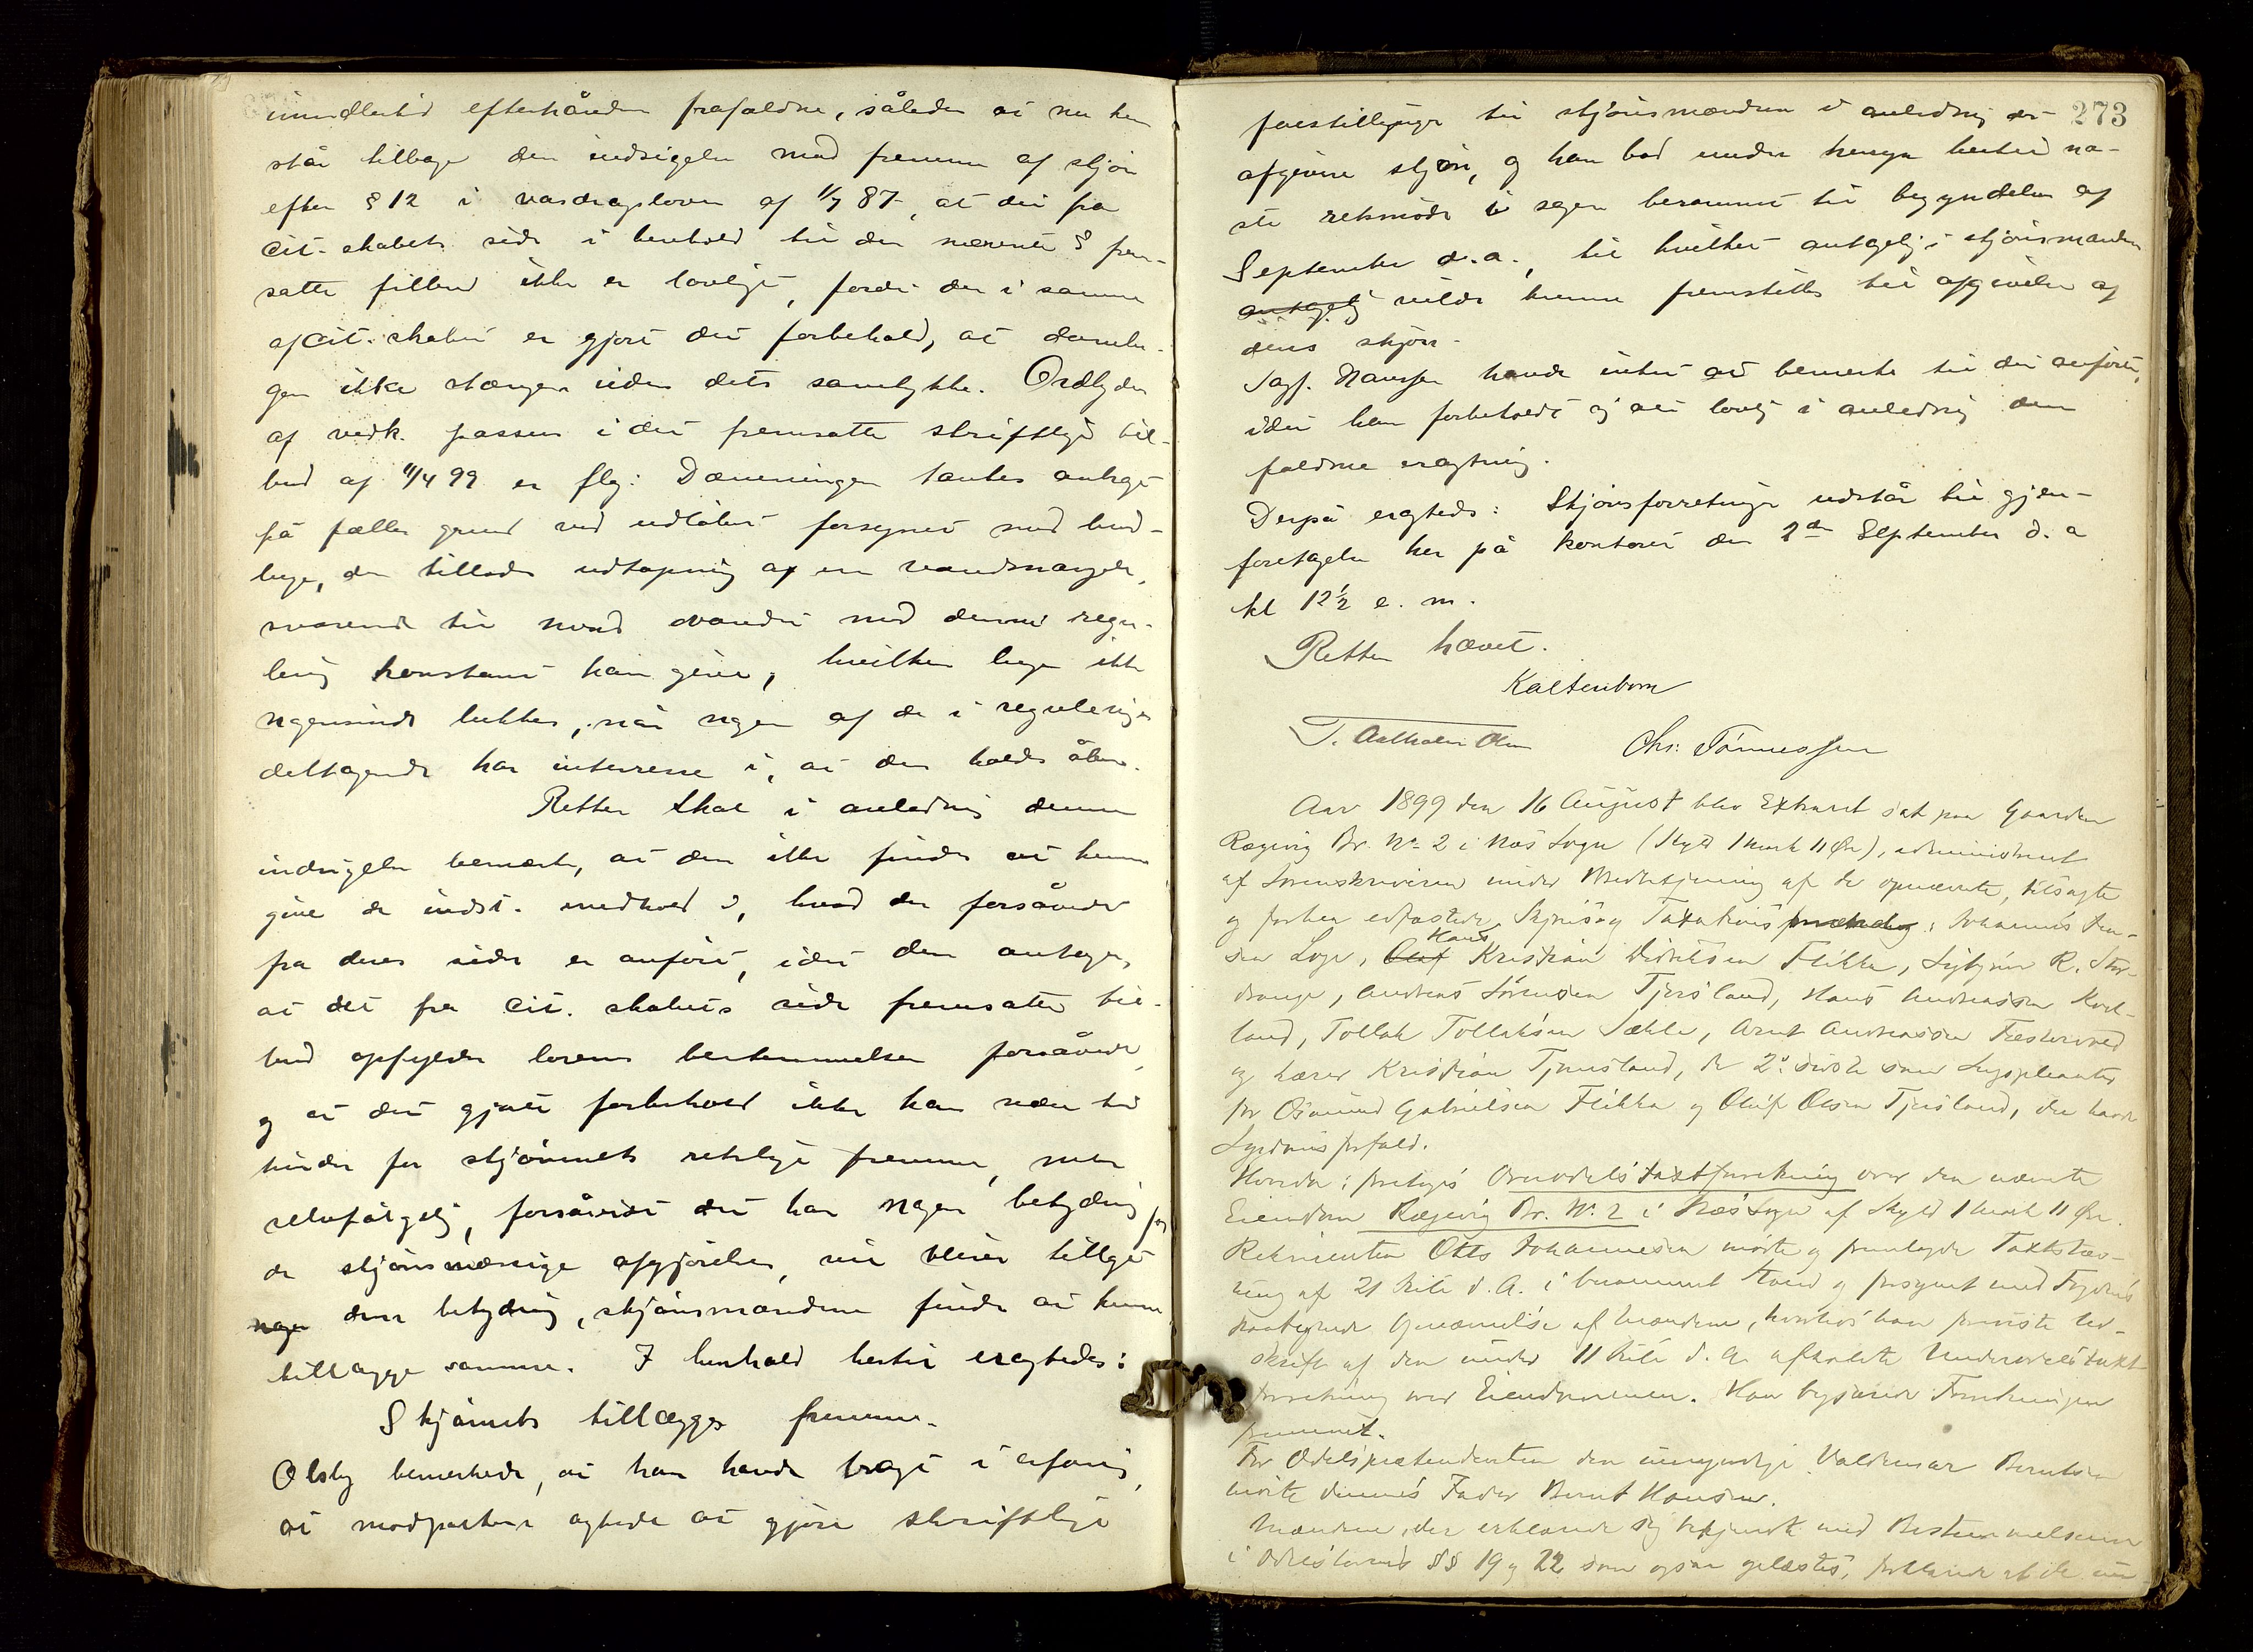 imidlertid efterhånden frafaldne, således at nu kun
står tilbage den indsigelse mod fremme af skjøn
efter § 12 i vasdragsloven af 1/7 87, at det fra
cit. skabets side i henhold til den nævnte § frem-
satte tilbud ikke er lovligt, fordi der i samme
af cit. skabet er gjort det forbehold, at dæmnin-
gen ikke stænges uden dets samtykke. Ordlyden
af vedk. passus i det fremsatte skriftlige til-
bud af 11/4 99 er flg: Dæmningen tænkes anlagt
på fælles grund ved udløbet forsynet med bund-
luge, der tillader udtapning af en vandmængde,
svarende til hvad vandet med denne regu-
lering konstant kan give, hvilken luge ikke
ngensinde lukkes, når ngen af de i reguleringen
deltagende har interesse i, at den holdes åben.
Retten skal i anledning denne
indsigelse bemærke, at den ikke finder at kunne
give de indst. medhold i, hvad der forsåvidt
fra deres side er anført, idet den antager,
at det fra cit. skabets side fremsatte til-
bud opfylder lovens bestemmelser forsåvidt,
og at det gjorte forbehold ikke kan være til
hinder for skjønnets retslige fremme, men
selvfølgelig, forsåvidt det har ngen betydning for
de skjønsmæssige afgjørelser, vil blive tillagt
ngen den betydning, skjønsmændene finder at kunne
tillægge samme. I henhold hertil eragtedes:
Skjønnets tillægges fremme.
Olsby bemerkede, at han havde bragt i erfaring,
at modparterne agtede at gjøre skriftlige
273
forestillinger til skjønsmændene i anledning det
afgivne skjøn, og han bad under hensyn hertil næ-
ste retsmøde i sagen berammet til begyndelsen af
September d. a., til hvilket antagelig skjønsmændene
antagelig vilde kunne fremstilles til afgivelse af
deres skjøn.
Sagf. Hanssen havde intet at bemerke til det anførte,
idet han forbeholdt sig alt lovlig i anledning den
faldne eragtning.
Derpå eragtedes: Skjønsforretningen udstår til gjen-
foretagelse her på kontoret den 2den September d. a
kl 12½ e. m.
Retten hævet.
Kaltenborn
T. Aalholm Olsen Chr. Tønnessen
Aar 1899 den 16 August blev Extraret sat paa Gaarden
Rægevig Br. No 2 i Næs Sogn (Skyld 1 Mark 11 Øre), administreret
af Sorenskriveren under Medbetjening af de opnævnte, tilsagte
og forhen edfæstede Skjøns og Taxationsmænd: Johannes
Loge, Olaf Hans Kristian Didriksen Flikke, Sigbjørn R. Stor-
drange, Andreas Sørensen Tjørsland, Hans Andreassen
land, Tollak Tollaksen Sække, Arent Andreassen
og Kristian Tjørnsland, de 2de sidste som Suppleanter
for Osmund Gabrielsen Flikke og Oluf Olsen Tjørsland, der havde
Sygdomsforfald.
Hvorda: foretoges Overodelstaxtforretning over den nævnte
Eiendom Rægevig Br. No 2 i Næs Sogn af Skyld 1 Mark 11 Øre.
Rekvirenten Otto Johannesen mødte og fremlagde Taxtstæv-
ning af 21 Juli d. A. i berammet Stand og forsynet med Fogdens
paategnede Opnævnelse af Mændene, hvorhos han foreviste Ud-
skrift af den under 11 Juli d. A. afholdte Underodelstaxt
forretning over Eiendommen. Han begjærede Forretningen
fremmet.
For Odelspretendenten den umyndige Valdemar Berntsen
mødte dennes Fader Bernt Hansen.
Mændene, der erklærede sig bekjendt med Bestemmelserne
i Odelslovens §§ 19 og 22 som ogsaa oplæstes, forklarede at de